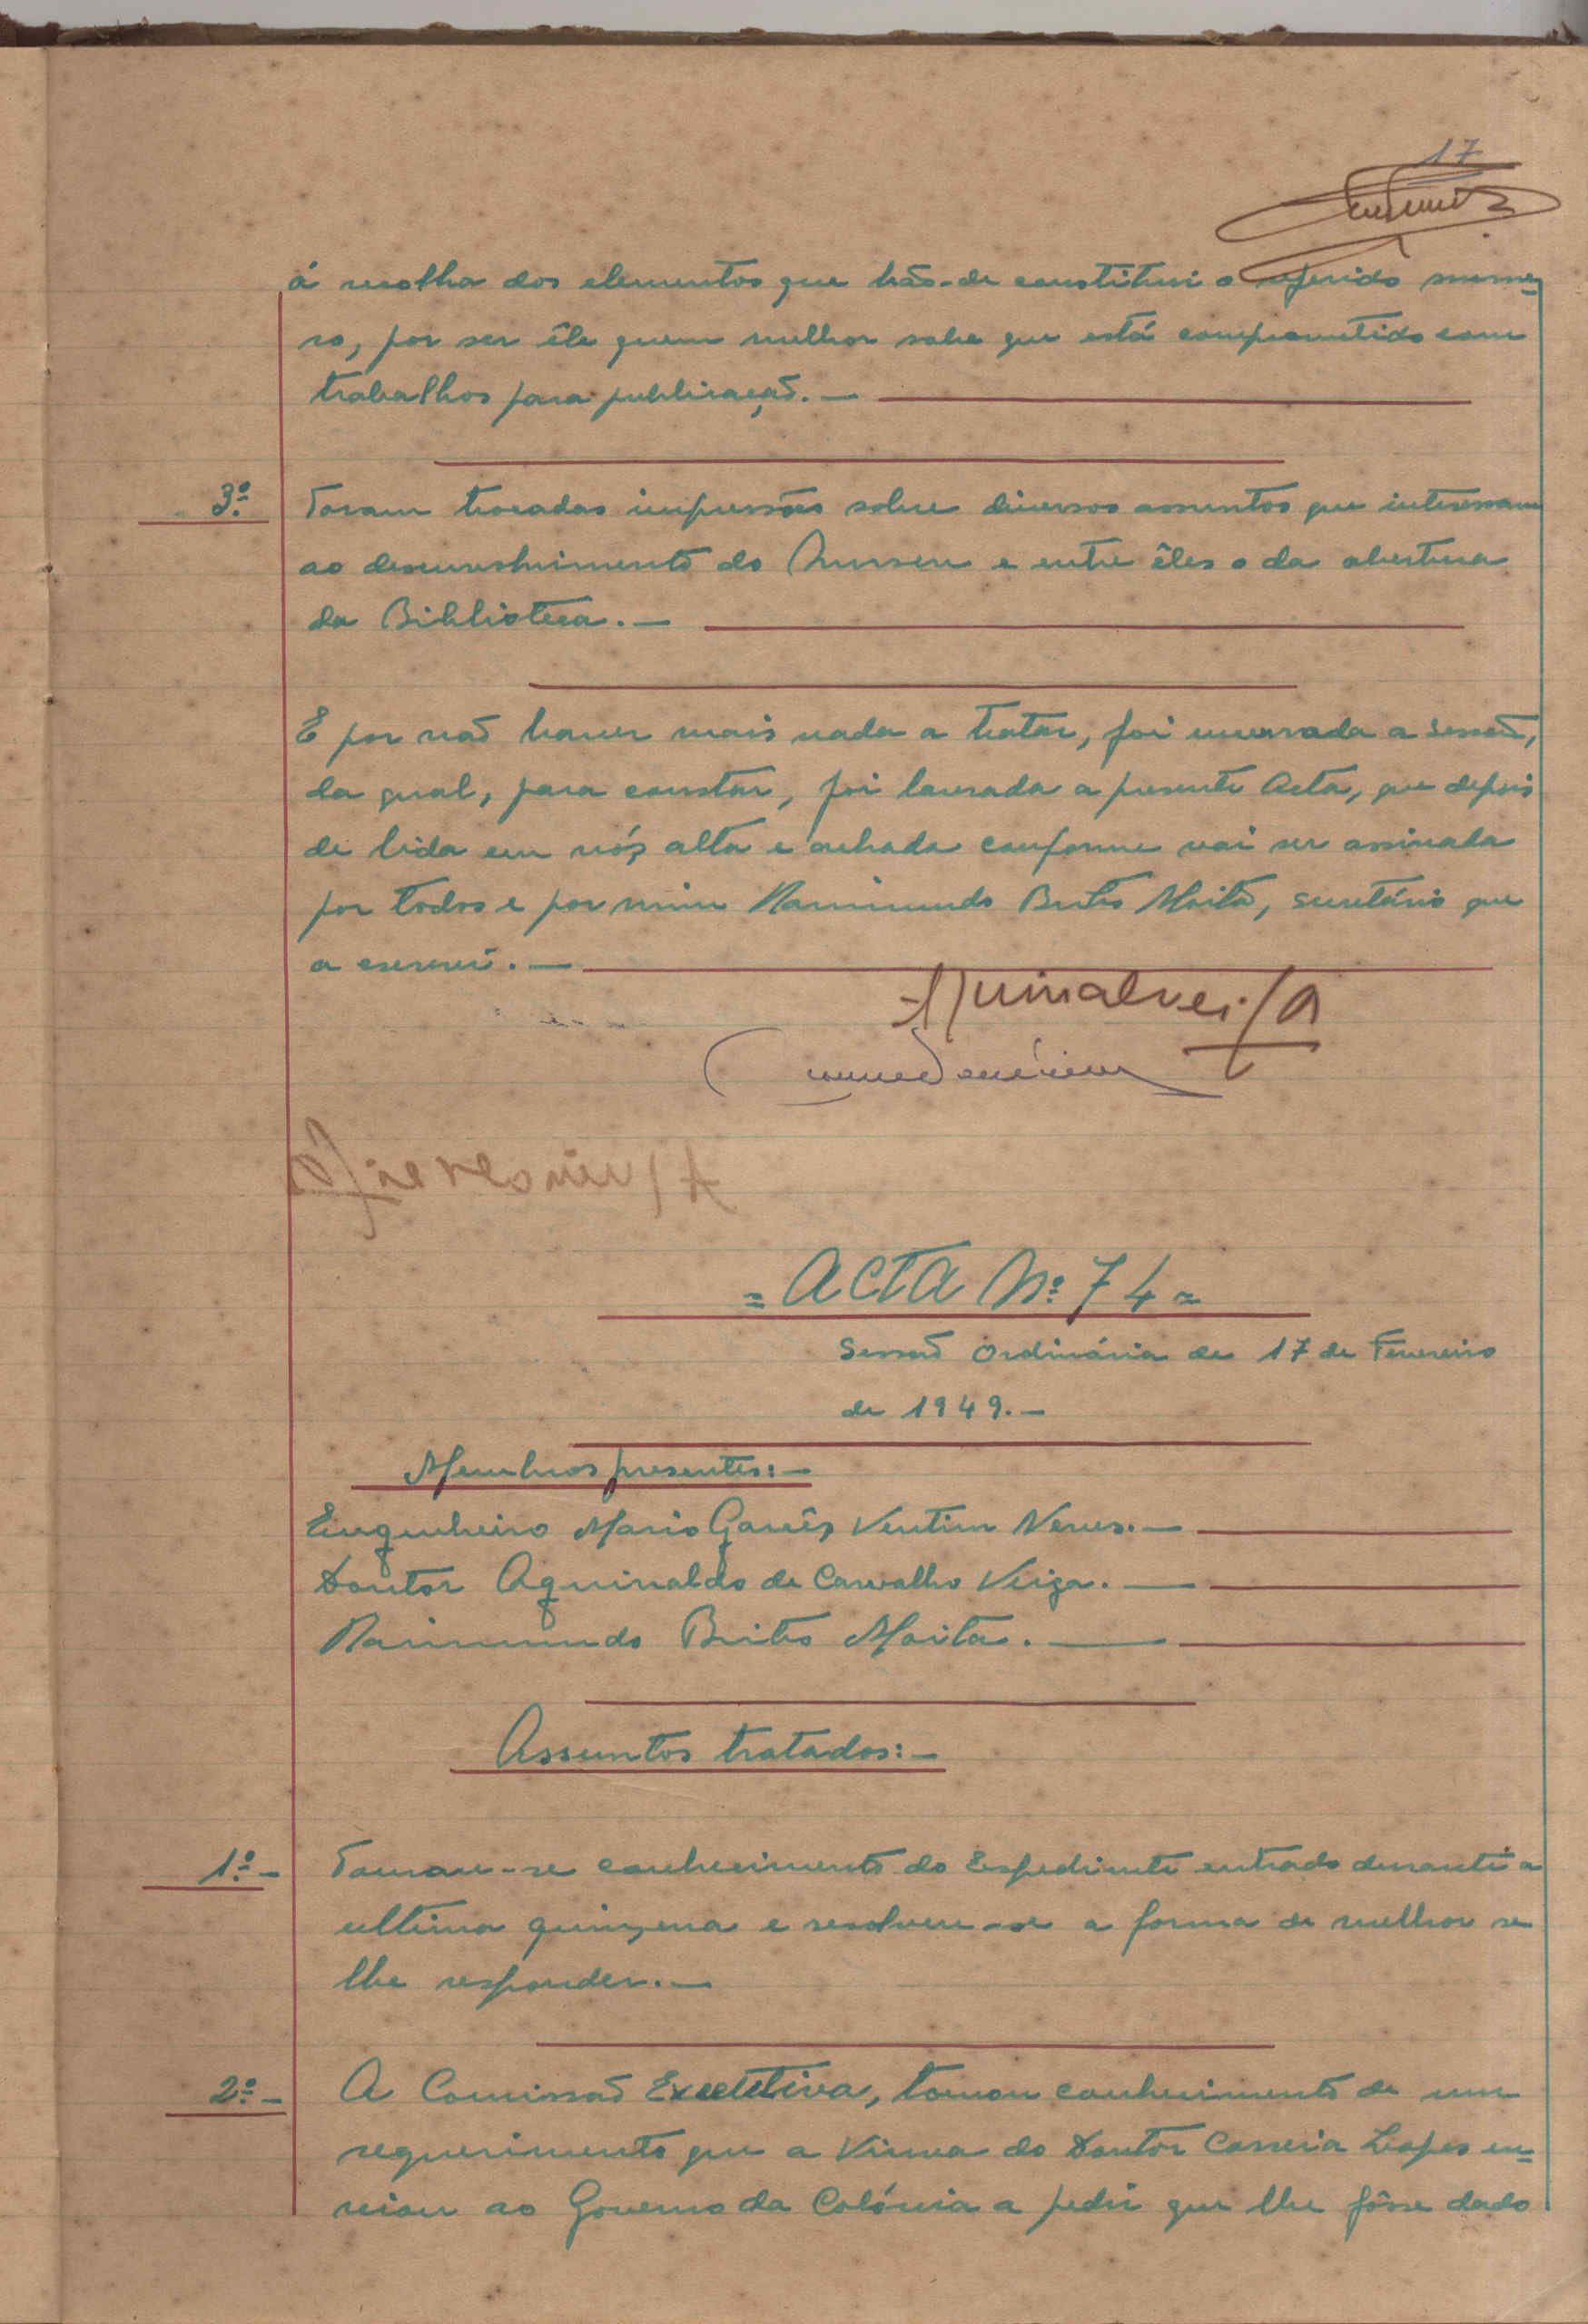 17
á recolha dos elementos que hão-de constituir o referido nume-
ro, por ser êle quem melhor sabe que está comprometido com
trabalhos para publicação.—
3º.
Foram trocadas impressões sobre diversos assuntos que interessam
ao desenvolvimento do Museu e entre êles o da abertura
da Biblioteca.—
E por não haver mais nada a tratar, foi encerrada a sessão,
da qual, para constar, foi lavrada a presente Acta, que depois
de lida em vóz alta e achada conforme vai ser assinada
por todos e por mim Raimundo Brites Moita, secretário que
a escrevi.—
= ACTA Nº. 74 =
Sessão Ordinária de 17 de Fevereiro
de 1949.—
Membros presentes:—
Engenheiro Mario Garcês Ventim Neves.—
Doutor Aguinaldo de Carvalho Veiga.—
Raimundo Brites Moita.—
Assuntos tratados:—
1º.—
Tomou-se conhecimento do Expediente entrado durante a
ultima quinzena e resolveu-se a forma de melhor se
lhe responder.—
2º.—
A Comissão Executiva, tomou conhecimento de um
requerimento que a Viuva do Doutor Correia Lopes en-
viou ao Governo da Colónia a pedir que lhe fôsse dado